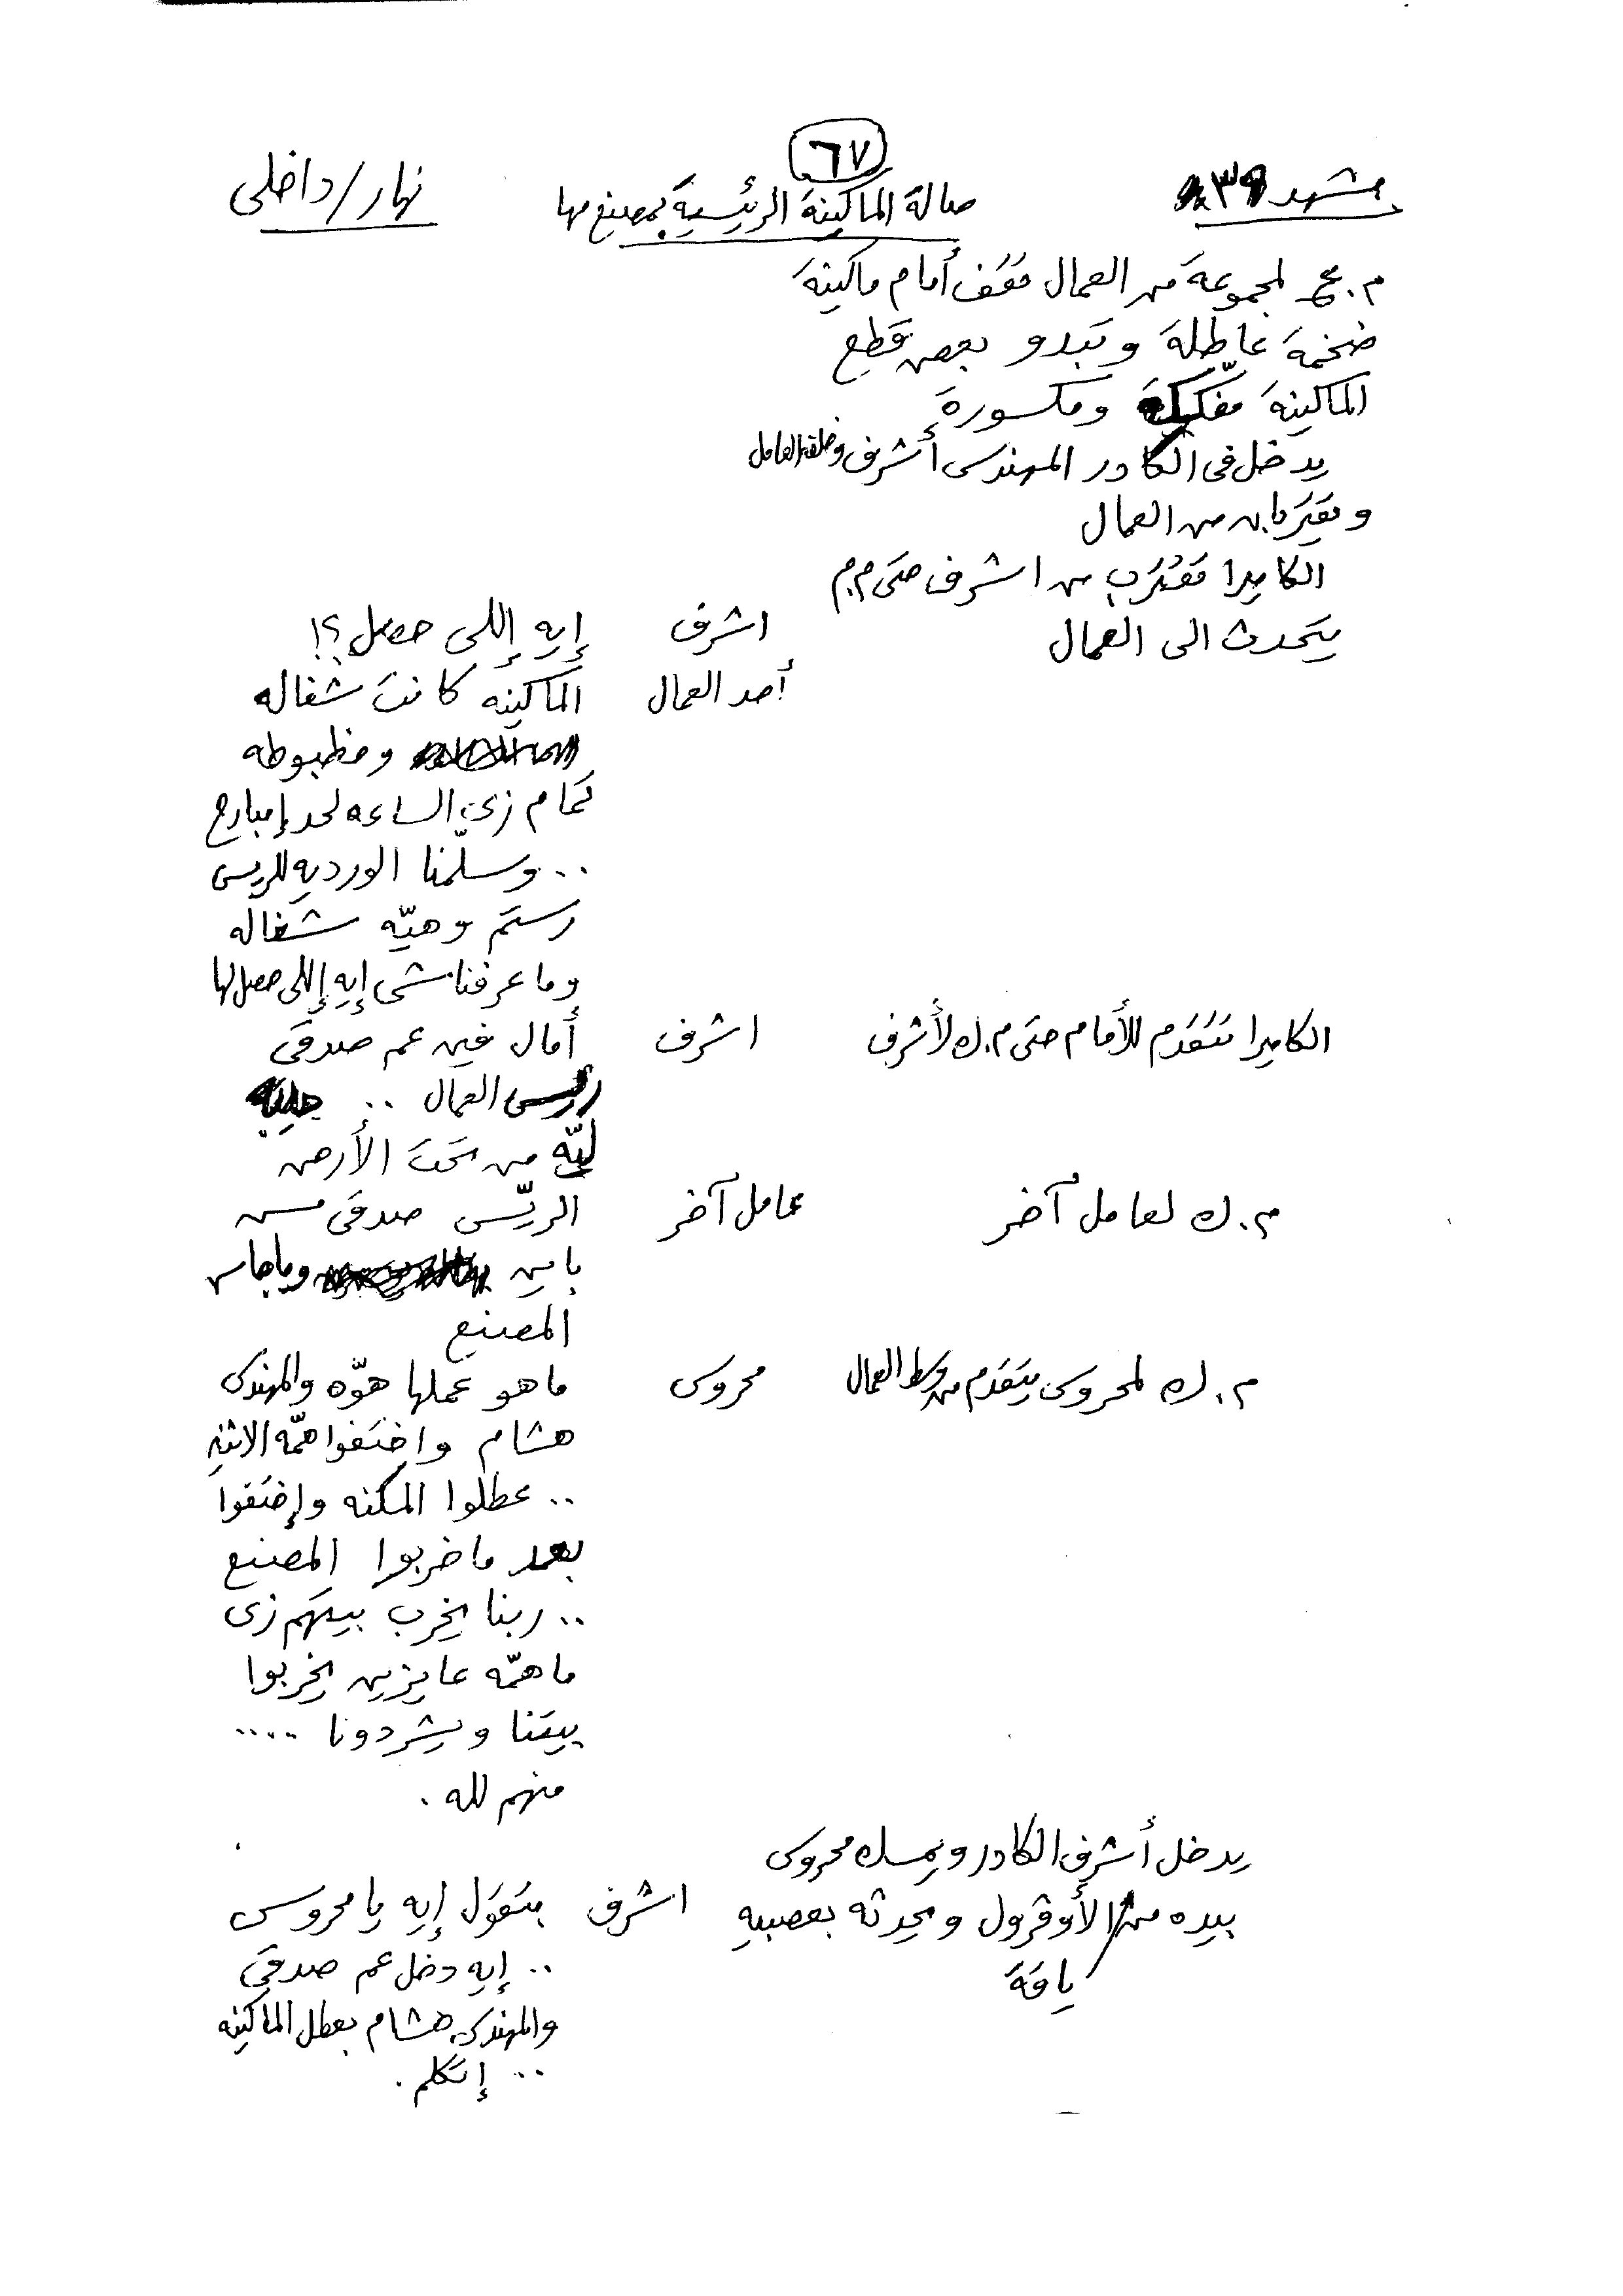 ٦٧
مشهد ٣٩
صالة الماكينة الرئيسية بمصنع مها
نهار/داخلى
م.ع لمجموعة من العمال تقف أمام ماكينة
ضخمة عاطلة وتبدو بعض قطع
الماكينة مفككة ومكسورة
يدخل فى الكادر المهندس أشرف وخلفه العامل
ويقتربان من العمال
الكاميرا تقترب من اشرف حتى م.م
يتحدث الى العمال
اشرف
إيه إللى حصل؟!
أحد العمال
الماكينه كانت شغاله
ومظبوطه
تمام زى الساعه لحد إمبارح
.. وسلّمنا الورديه للريس
رستم وهيّه شغاله
وماعرفناشى إيه إللى حصل لها
الكاميرا تتقدم للأمام حتى م.ك لأشرف
اشرف
أمال فين عم صدقى
رئيس العمال ..
ليّه من تحت الأرض
م.ك لعامل آخر
عامل آخر
الريّس صدقى مش
باين وماجاش
المصنع
م.ك لمحروس يتقدم من وسط العمال
محروس
ماهو عملها هوّه والمهندس
هشام واختفوا همّه الاتنين
.. عطلوا المكنه وإختفوا
بعد ماخربوا المصنع
.. ربنا يخرب بيتهم زى
ماهمّه عايزين يخربوا
بيتنا ويشردونا ....
منهم لله .
يدخل أشرف الكادر ويمسك محروس
بيده من الأوفرول ويحدثه بعصبيه
ياقة
اشرف
بتقول إيه يا محروس
.. إيه دخل عم صدقى
والمهندس هشام بعطل الماكينه
.. إتكلم .